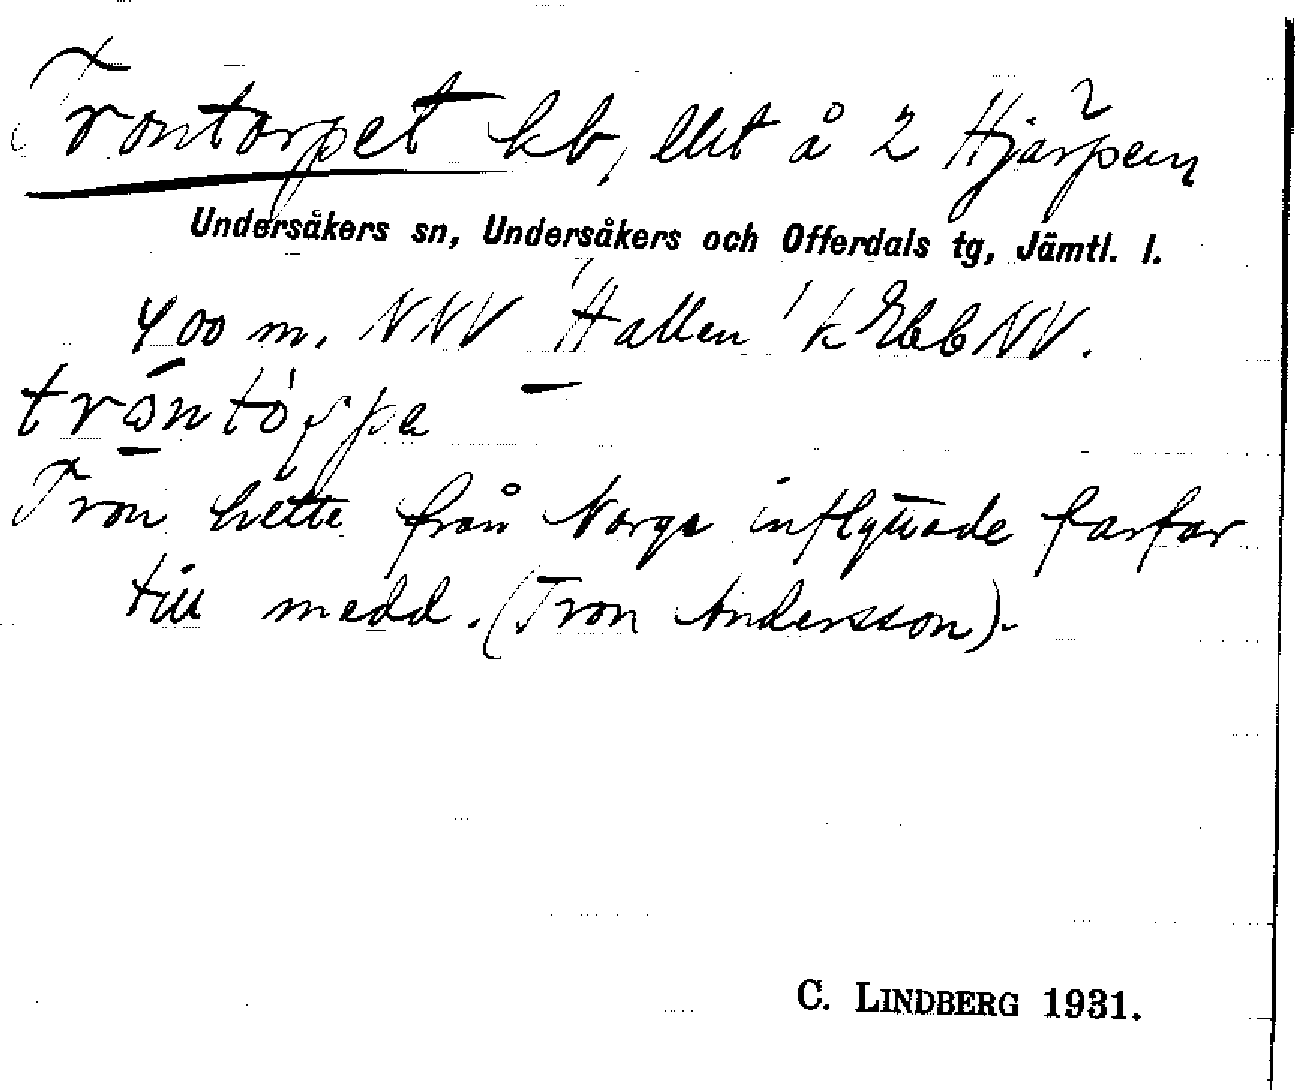 Trontorpet kb, lht å 2 Hjärpen²
Undersåkers sn, Undersåkers och Offerdals tg, Jämtl. l.
400 m. NNV 'Hallen' k NV.
tròntòppa
Tron hette från Norge inflyttade farfar
till medd. (Tron Andersson).
C. LINDBERG 1931.